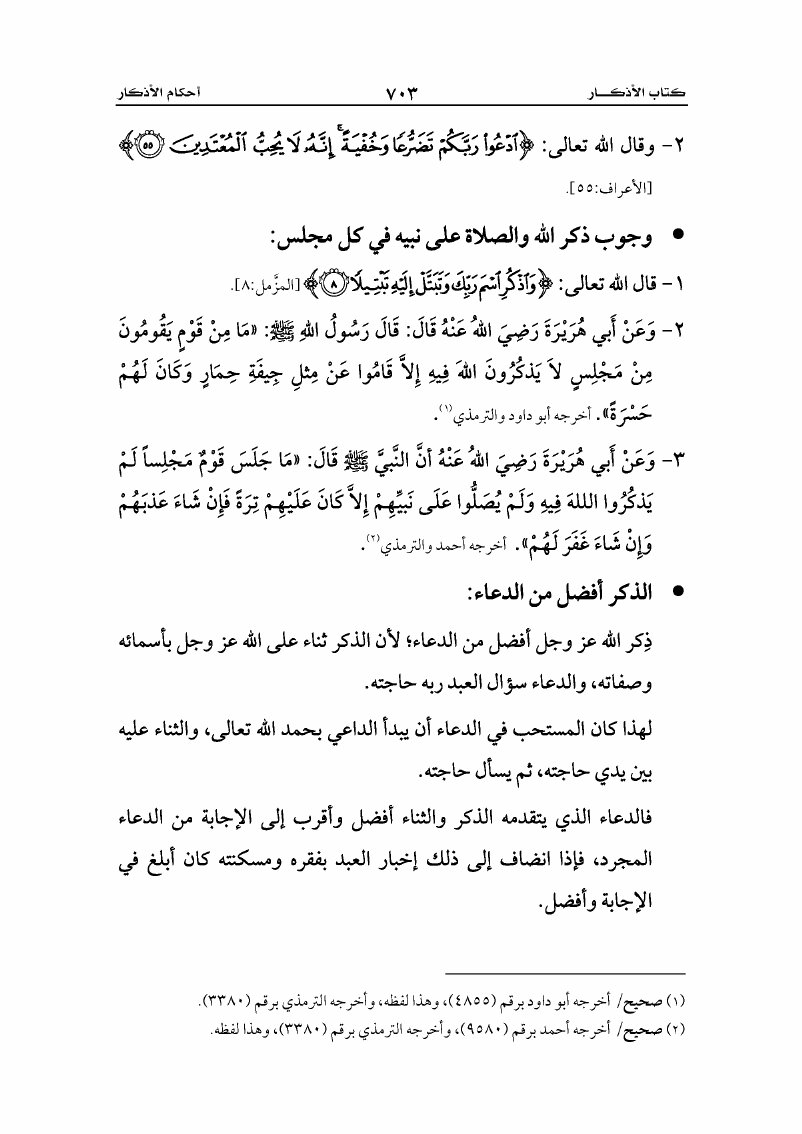 كتاب الأذكـــار ٧٠٣ أحكام الأذكار
٢- وقال الله تعالى: ﴿ٱدۡعُواْ رَبَّكُمۡ تَضَرُّعٗا وَخُفۡيَةًۚ إِنَّهُۥ لَا يُحِبُّ ٱلۡمُعۡتَدِينَ ٥٥﴾
[الأعراف:٥٥].
● وجوب ذكر الله والصلاة على نبيه في كل مجلس:
١- قال الله تعالى: ﴿وَٱذۡكُرِ ٱسۡمَ رَبِّكَ وَتَبَتَّلۡ إِلَيۡهِ تَبۡتِيلٗا ٨﴾ [المزَّمل:٨].
٢- وَعَنْ أَبي هُرَيْرَةَ رَضِيَ اللهُ عَنْهُ قَالَ: قَالَ رَسُولُ اللهِ ﷺ: «مَا مِنْ قَوْمٍ يَقُومُونَ
مِنْ مَجْلِسٍ لاَ يَذكُرُونَ اللهَ فِيهِ إِلاَّ قَامُوا عَنْ مِثلِ جِيفَةِ حِمَارٍ وَكَانَ لَهُمْ
حَسْرَةً». أخرجه أبو داود والترمذي(١).
٣- وَعَنْ أَبي هُرَيْرَةَ رَضِيَ اللهُ عَنْهُ أنَّ النَّبِيَّ ﷺ قَالَ: «مَا جَلَسَ قَوْمٌ مَجْلِساً لَمْ
يَذكُرُوا اللهَ فِيهِ وَلَمْ يُصَلُّوا عَلَى نَبيِّهِمْ إِلاَّ كَانَ عَلَيْهِمْ تِرَةً فَإِنْ شَاءَ عَذبَهُمْ
وَإِنْ شَاءَ غَفَرَ لَهُمْ». أخرجه أحمد والترمذي(٢).
● الذكر أفضل من الدعاء:
ذِكر الله عز وجل أفضل من الدعاء؛ لأن الذكر ثناء على الله عز وجل بأسمائه
وصفاته، والدعاء سؤال العبد ربه حاجته.
لهذا كان المستحب في الدعاء أن يبدأ الداعي بحمد الله تعالى، والثناء عليه
بين يدي حاجته، ثم يسأل حاجته.
فالدعاء الذي يتقدمه الذكر والثناء أفضل وأقرب إلى الإجابة من الدعاء
المجرد، فإذا انضاف إلى ذلك إخبار العبد بفقره ومسكنته كان أبلغ في
الإجابة وأفضل.
(١) صحيح/ أخرجه أبو داود برقم (٤٨٥٥)، وهذا لفظه، وأخرجه الترمذي برقم (٣٣٨٠).
(٢) صحيح/ أخرجه أحمد برقم (٩٥٨٠)، وأخرجه الترمذي برقم (٣٣٨٠)، وهذا لفظه.